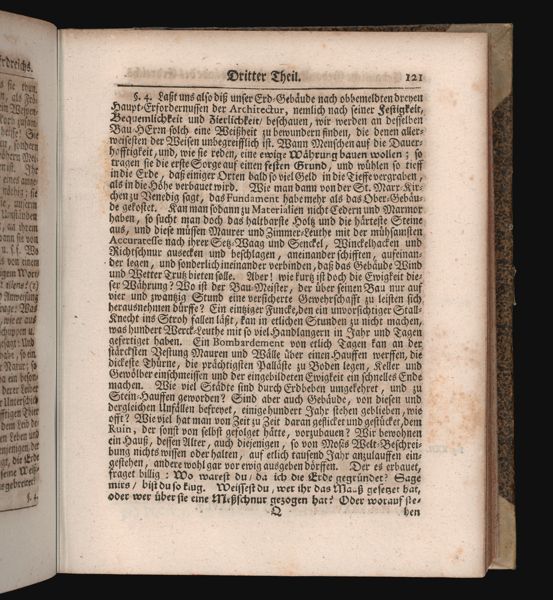 rdreichs.
Dritter Theil. 121
§. 4. Laßt uns also diß unser Erd-Gebäude nach obbemeldten dreyen
Haupt-Erfordernussen der Architectur, nemlich nach seiner Festigkeit,
Bequemlichkeit und Zierlichkeit/ beschauen, wir werden an desselben
Bau-HErrn solch eine Weißheit zu bewundern finden, die denen aller-
weisesten der Weisen unbegreifflich ist. Wann Menschen auf die Dauer-
hafftigkeit, und, wie sie reden, eine ewige Währung bauen wollen; so
tragen sie die erste Sorge auf einen festen Grund, und wühlen so tieff
in die Erde, daß einiger Orten bald so viel Geld in die Tieffe vergraben,
als in die Höhe verbauet wird. Wie man dann von der St. Marx Kir-
chen zu Venedig sagt, das Fundament habe mehr als das Ober-Gebäu-
de gekostet. Kan man sodann zu Materialien nicht Cedern und Marmor
haben, so sucht man doch das haltbarste Holtz und die härteste Steine
aus, und diese müssen Maurer und Zimmer-Leuthe mit der mühsamsten
Accuratesse nach ihrer Setz-Waag und Senckel, Winckelhacken und
Richtschnur ausecken und beschlagen, aneinander schifften, aufeinan-
der legen, und sonderlich ineinander verbinden, daß das Gebäude Wind
und Wetter Trutz bieten solle. Aber! wie kurtz ist doch die Ewigkeit die-
ser Währung? Wo ist der Bau-Meister, der über seinen Bau nur auf
vier und zwantzig Stund eine versicherte Gewehrschafft zu leisten sich
herausnehmen dürffe? Ein eintziger Funcke, den ein unvorsichtiger Stall-
Knecht ins Stroh fallen läßt, kan in etlichen Stunden zu nicht machen,
was hundert Werck-Leuthe mit so viel Handlangern in Jahr und Tagen
gefertiget haben. Ein Bombardement von etlich Tagen kan an der
stärcksten Vestung Mauren und Wälle über einen Hauffen werffen, die
dickeste Thürne, die prächtigsten Palläste zu Boden legen, Keller und
Gewölber einschmeissen und der eingebildeten Ewigkeit ein schnelles Ende
machen. Wie viel Städte sind durch Erdbeben umgekehret, und zu
Stein-Hauffen geworden? Sind aber auch Gebäude, von diesen und
dergleichen Unfällen befreyet, einige hundert Jahr stehen geblieben, wie
offt? Wie viel hat man von Zeit zu Zeit daran geflicket und gestücket, dem
Ruin, der sonst von selbst gefolget hätte, vorzubauen? Wir bewohnen
ein Hauß, dessen Alter, auch diejenigen, so von Mosis Welt-Beschrei-
bung nichts wissen oder halten, auf etlich tausend Jahr anzulauffen ein-
gestehen, andere wohl gar vor ewig ausgeben dörffen. Der es erbauet,
fraget billig: Wo warest du/ da ich die Erde gegründet? Sage
mirs/ bist du so klug. Weissest du, wer ihr das Maaß gesetzet hat,
oder wer über sie eine Meßschnur gezogen hat? Oder worauf ste-
Q hen
§. 4.